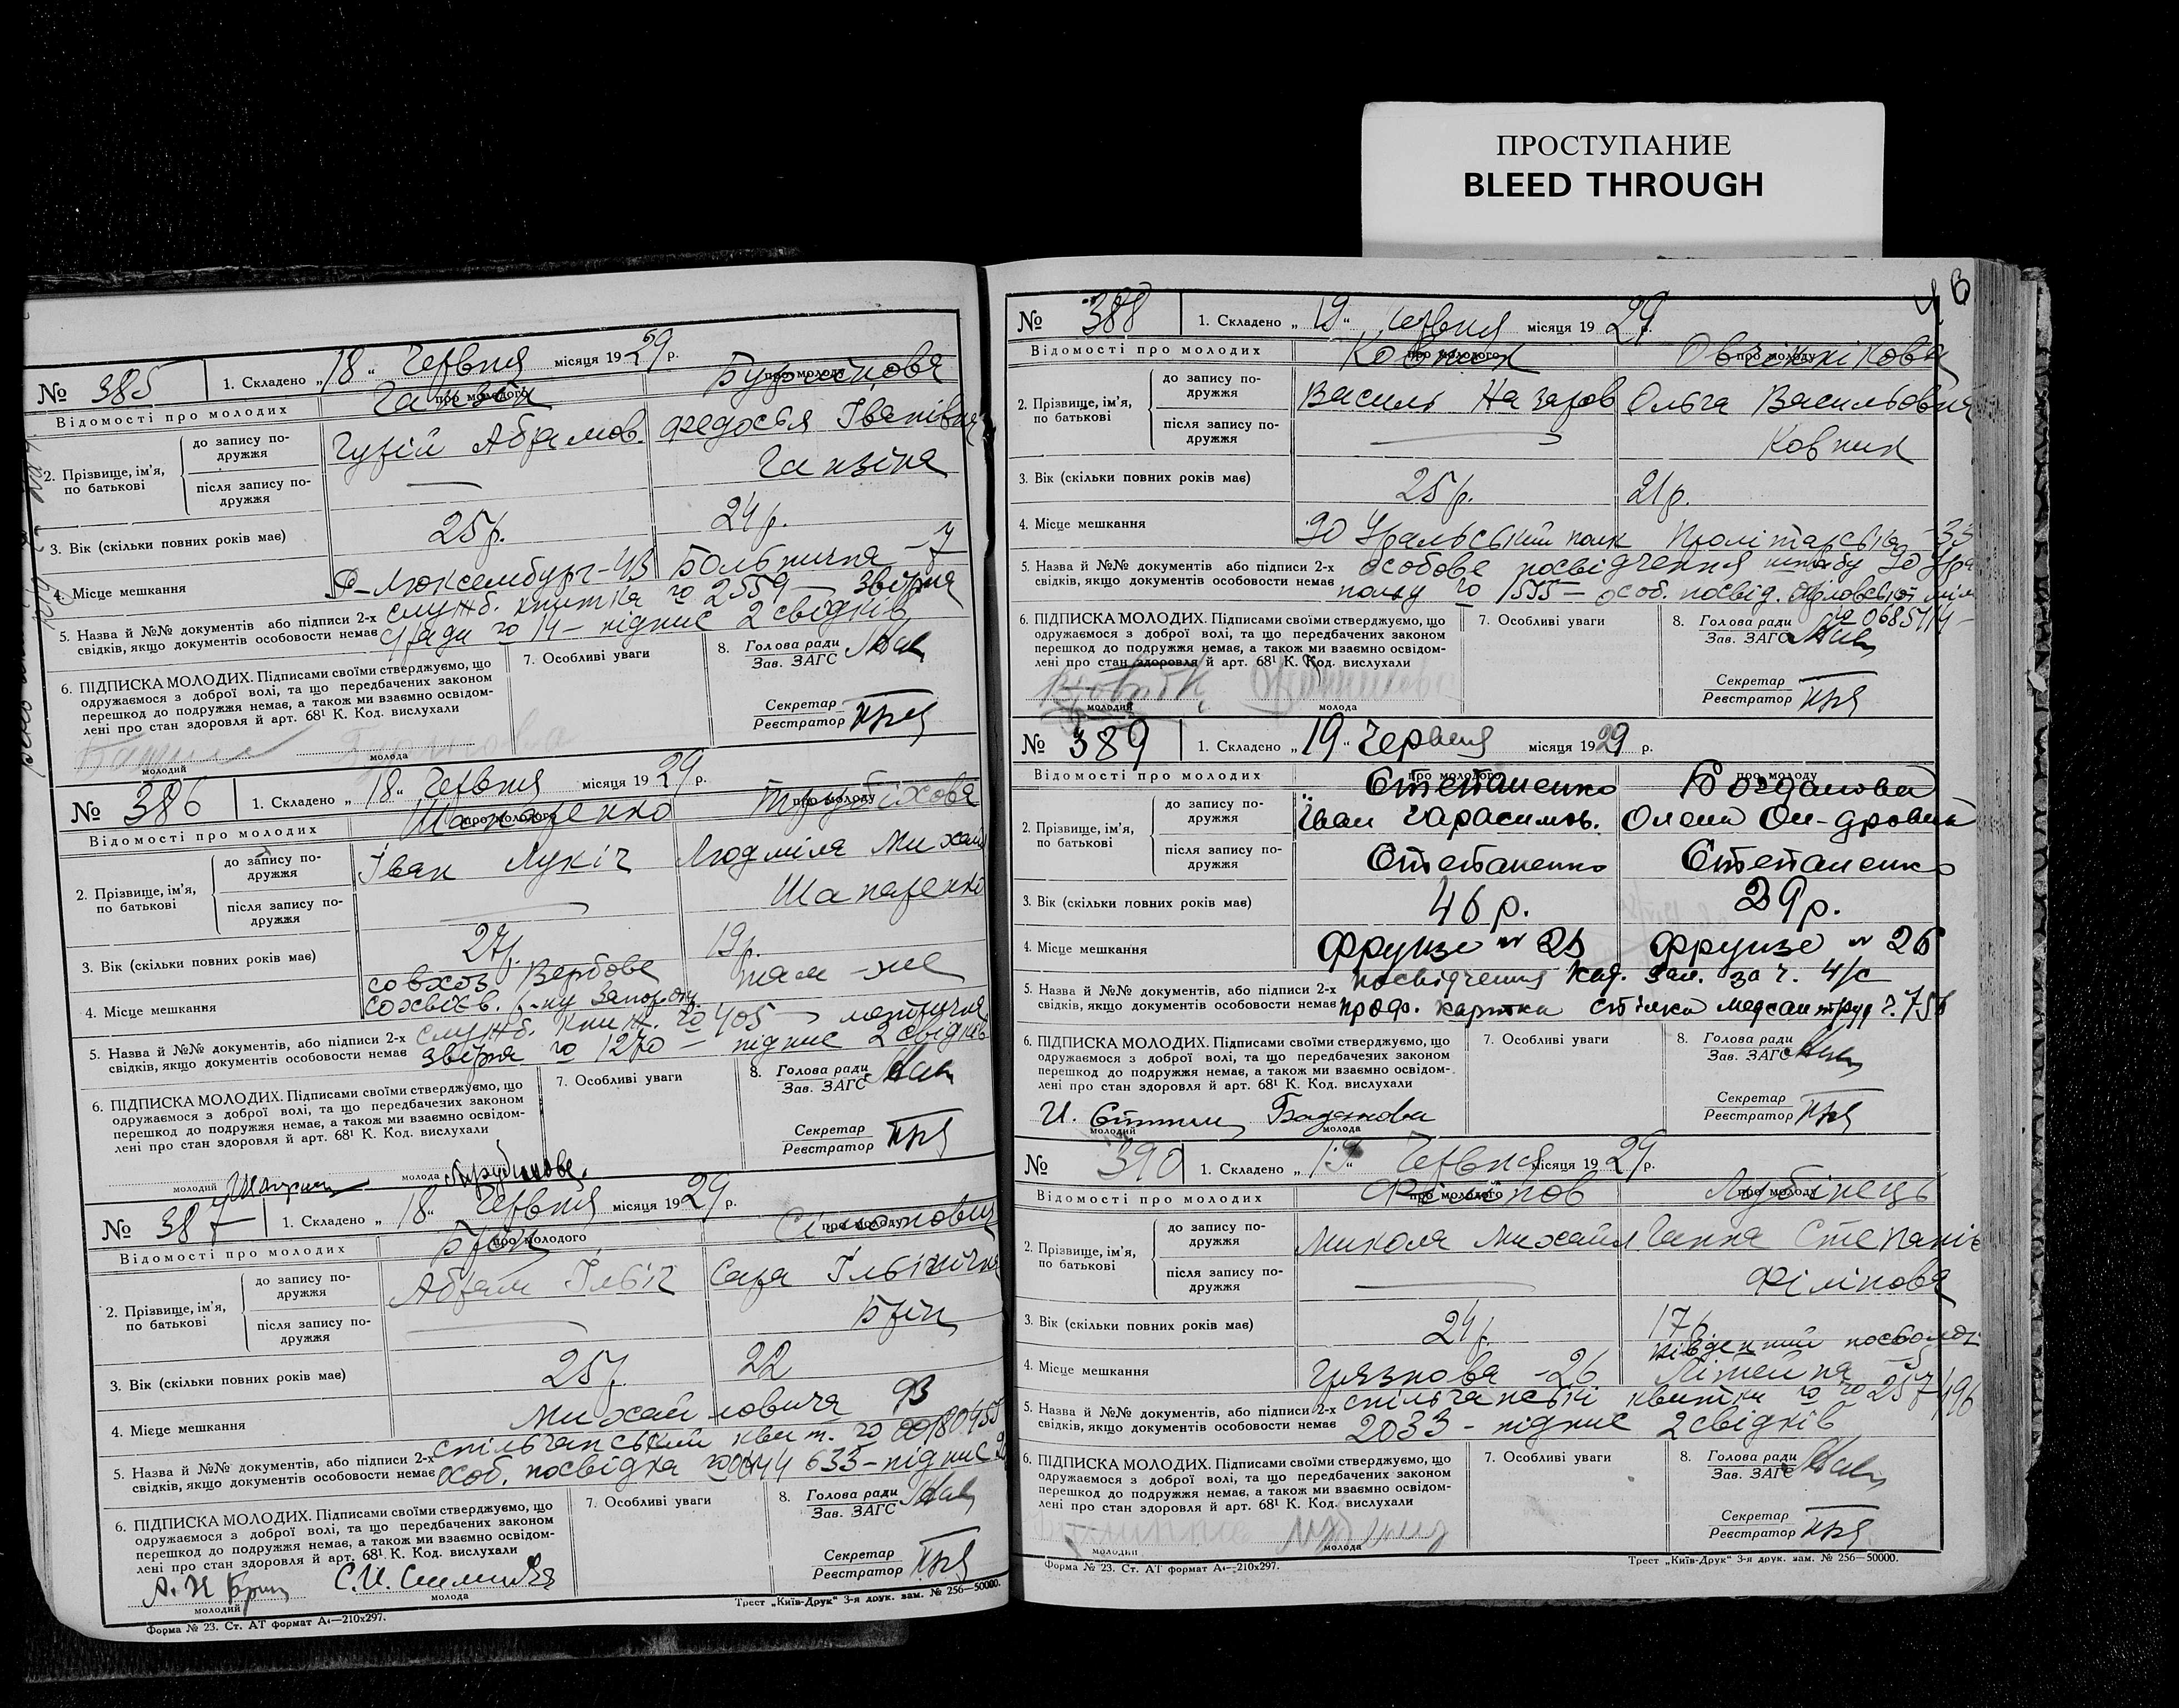 ПРОСТУПАНИЕ
BLEED THROUGH
№ 385
1. Складено „18“ Червня місяця 1929 р.
Відомості про молодих
про молоду
2. Прізвище, ім'я, по батькові
до запису подружжя
Гурій Абрамов. Федосья Іванівна
після запису подружжя
— Ганзіна
3. Вік (скільки повних років має) 25 р. 24 р.
4. Місце мешкання Р-Люксембург-43 Больнична - 7
5. Назва й №№ документів або підписи 2-х свідків, якщо документів особовости немає
служб. книжка № 2559 —
№ 14 — підпис 2 свідків
6. ПІДПИСКА МОЛОДИХ. Підписами своїми стверджуємо, що
одружаємося з доброї волі, та що передбачених законом
перешкод до подружжя немає, а також ми взаємно освідом-
лені про стан здоровля й арт. 68¹ К. Код. вислухали
молодий молода
7. Особливі уваги
8. Голова ради
Зав. ЗАГС
Секретар
Реєстратор
№ 386
1. Складено „18“ Червня місяця 1929 р.
Відомості про молодих
Шапаренко
про молодого
про молоду
2. Прізвище, ім'я, по батькові
до запису подружжя
Іван Лукіч Людміла Михай
після запису подружжя
— Шапаренко
3. Вік (скільки повних років має) 27 р. 19 р.
4. Місце мешкання
совхоз Вербове там-же
5. Назва й №№ документів, або підписи 2-х свідків, якщо документів особовости немає
служб. книж. № 405 —
№ 1270 — підпис 2 свідків
6. ПІДПИСКА МОЛОДИХ. Підписами своїми стверджуємо, що
одружаємося з доброї волі, та що передбачених законом
перешкод до подружжя немає, а також ми взаємно освідом-
лені про стан здоровля й арт. 68¹ К. Код. вислухали
молодий молода
7. Особливі уваги
8. Голова ради
Зав. ЗАГС
Секретар
Реєстратор
№ 387
1. Складено „18“ Червня місяця 1929 р.
Відомості про молодих
про молодого
про молоду
2. Прізвище, ім'я, по батькові
до запису подружжя
Абрам Ільіч Сара Ільінічна
після запису подружжя
— Брін
3. Вік (скільки повних років має) 25 р. 22
4. Місце мешкання Михайловича 93
5. Назва й №№ документів, або підписи 2-х свідків, якщо документів особовости немає
спільчанський квит. №
особ. посвідка
6. ПІДПИСКА МОЛОДИХ. Підписами своїми стверджуємо, що
одружаємося з доброї волі, та що передбачених законом
перешкод до подружжя немає, а також ми взаємно освідом-
лені про стан здоровля й арт. 68¹ К. Код. вислухали
А. И Брин
молодий молода
7. Особливі уваги
8. Голова ради
Зав. ЗАГС
Секретар
Реєстратор
Форма № 23. Ст. АТ формат А₄—210x297.
Трест „Київ-Друк“ 3-я друк. зам. № 256—50000.
№ 388
1. Складено „19“ Червня місяця 1929 р.
Відомості про молодих
Ковпик Овчиннікова
про молодого
про молоду
2. Прізвище, ім'я, по батькові
до запису подружжя
Василь Назаров Ольга Васильовна
після запису подружжя
— Ковпик
3. Вік (скільки повних років має) 25 р. 21 р.
4. Місце мешкання 90 Уральський полк Пролітарська - 33
5. Назва й №№ документів або підписи 2-х свідків, якщо документів особовости немає
особове посвідчення штабу 90 Ура
полку № 1555 — особ. посвід.
№ 0685714 —
6. ПІДПИСКА МОЛОДИХ. Підписами своїми стверджуємо, що
одружаємося з доброї волі, та що передбачених законом
перешкод до подружжя немає, а також ми взаємно освідом-
лені про стан здоровля й арт. 68¹ К. Код. вислухали
молодий молода
7. Особливі уваги
8. Голова ради
Зав. ЗАГС
Секретар
Реєстратор
№ 389
1. Складено „19“ Червня місяця 1929 р.
Відомості про молодих
Степаненко Богданова
про молодого
про молоду
2. Прізвище, ім'я, по батькові
до запису подружжя
Іван Гарасимов. Олена Он-дровна
після запису подружжя
Степаненко Степаненко
3. Вік (скільки повних років має) 46 р. 39 р.
4. Місце мешкання Фрунзе № 26 Фрунзе № 26
5. Назва й №№ документів, або підписи 2-х свідків, якщо документів особовости немає
посвідчення за ч. 4/с
проф. картка спілки медсантруд ч. 756
6. ПІДПИСКА МОЛОДИХ. Підписами своїми стверджуємо, що
одружаємося з доброї волі, та що передбачених законом
перешкод до подружжя немає, а також ми взаємно освідом-
лені про стан здоровля й арт. 68¹ К. Код. вислухали
Богданова
молодий молода
7. Особливі уваги
8. Голова ради
Зав. ЗАГС
Секретар
Реєстратор
№ 390
1. Складено „19“ Червня місяця 1929 р.
Відомості про молодих
Філіпов Лубінець
про молодого
про молоду
2. Прізвище, ім'я, по батькові
до запису подружжя
Микола Михайл Ганна Степанів
після запису подружжя
— Філіпова
3. Вік (скільки повних років має) 24 р. 17 р.
4. Місце мешкання Грязнова - 26 Літейна
5. Назва й №№ документів, або підписи 2-х свідків, якщо документів особовости немає
спільчанські квитки №
2033 — підпис 2 свідків
6. ПІДПИСКА МОЛОДИХ. Підписами своїми стверджуємо, що
одружаємося з доброї волі, та що передбачених законом
перешкод до подружжя немає, а також ми взаємно освідом-
лені про стан здоровля й арт. 68¹ К. Код. вислухали
молодий молода
7. Особливі уваги
8. Голова ради
Зав. ЗАГС
Секретар
Реєстратор
Форма № 23. Ст. АТ формат А₄—210x297.
Трест „Київ-Друк“ 3-я друк. зам. № 256—50000.